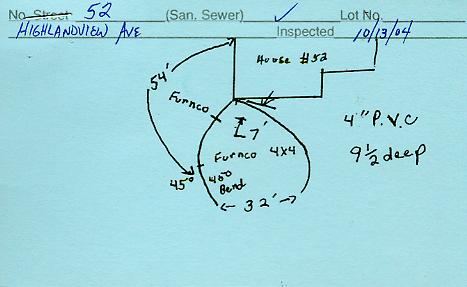 No. Street 52 (San. Sewer) ✓ Lot No.
HIGHLANDVIEW AVE Inspected 10/13/04
House #52
54'
Furnco
7'
4" P.V.C
Furnco 4x4
9 1/2 deep
45° 45°
Bend
32'